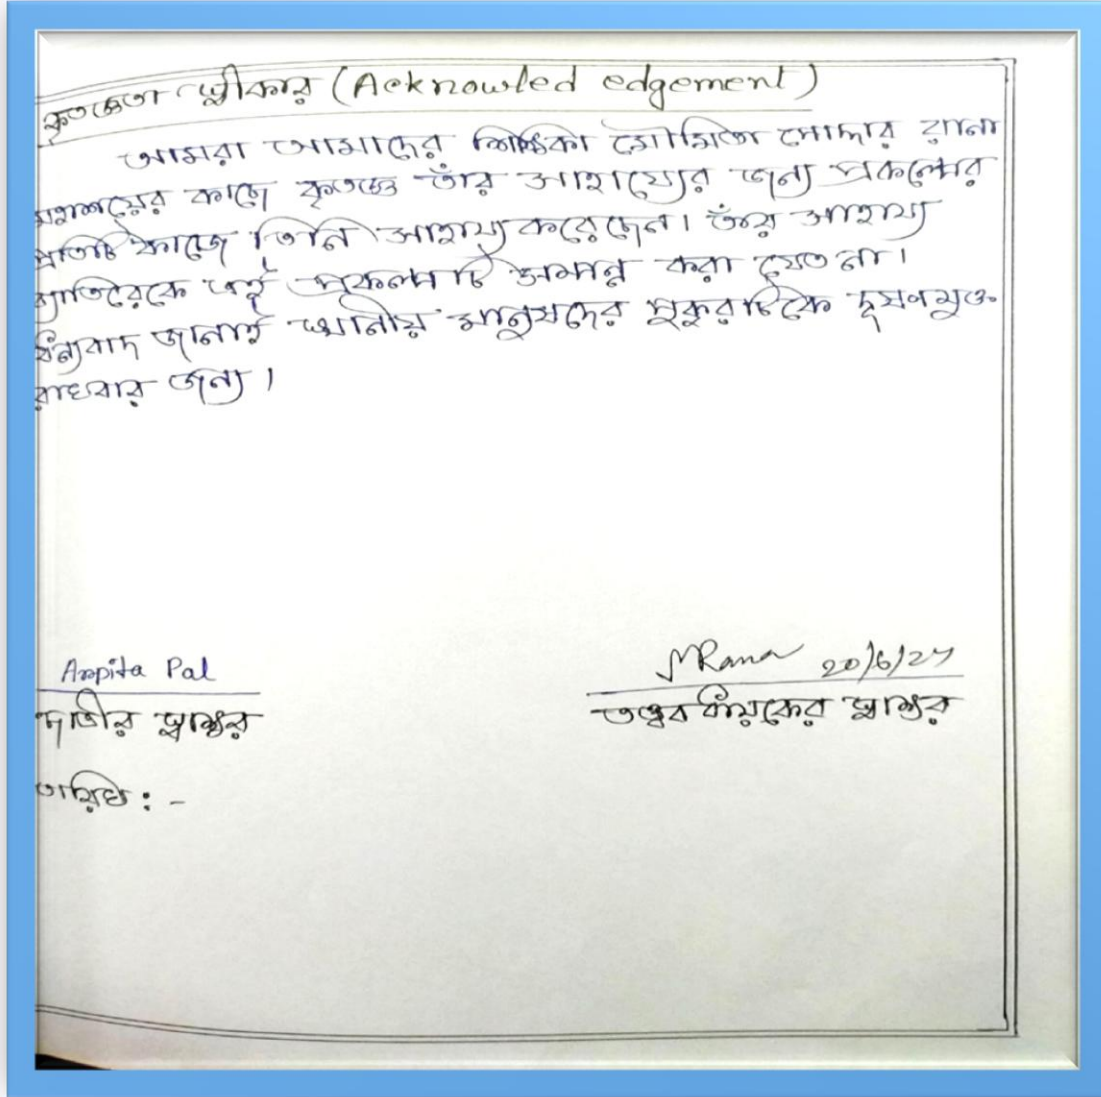 কৃতজ্ঞতা স্বীকার (Acknowled edgement)
আমরা আমাদের শিক্ষিকা মৌমিতা পোদ্দার রানা
মহাশয়ের কাছে কৃতজ্ঞ তাঁর সাহায্যের জন্য প্রকল্পের
প্রতিটি কাজে তিনি সাহায্য করেছেন। তাঁর সাহায্য
ব্যাতিরেকে এই প্রকল্পটি সমাপ্ন করা যেত না।
ধন্যবাদ জানাই স্থানীয় মানুষদের পুকুরটিকে দূষণমুক্ত
রাখবার জন্য।
Arpita Pal
MRana 20/6/24
ছাত্রীর স্বাক্ষর
তত্ত্বাবধায়কের স্বাক্ষর
তারিখ : -